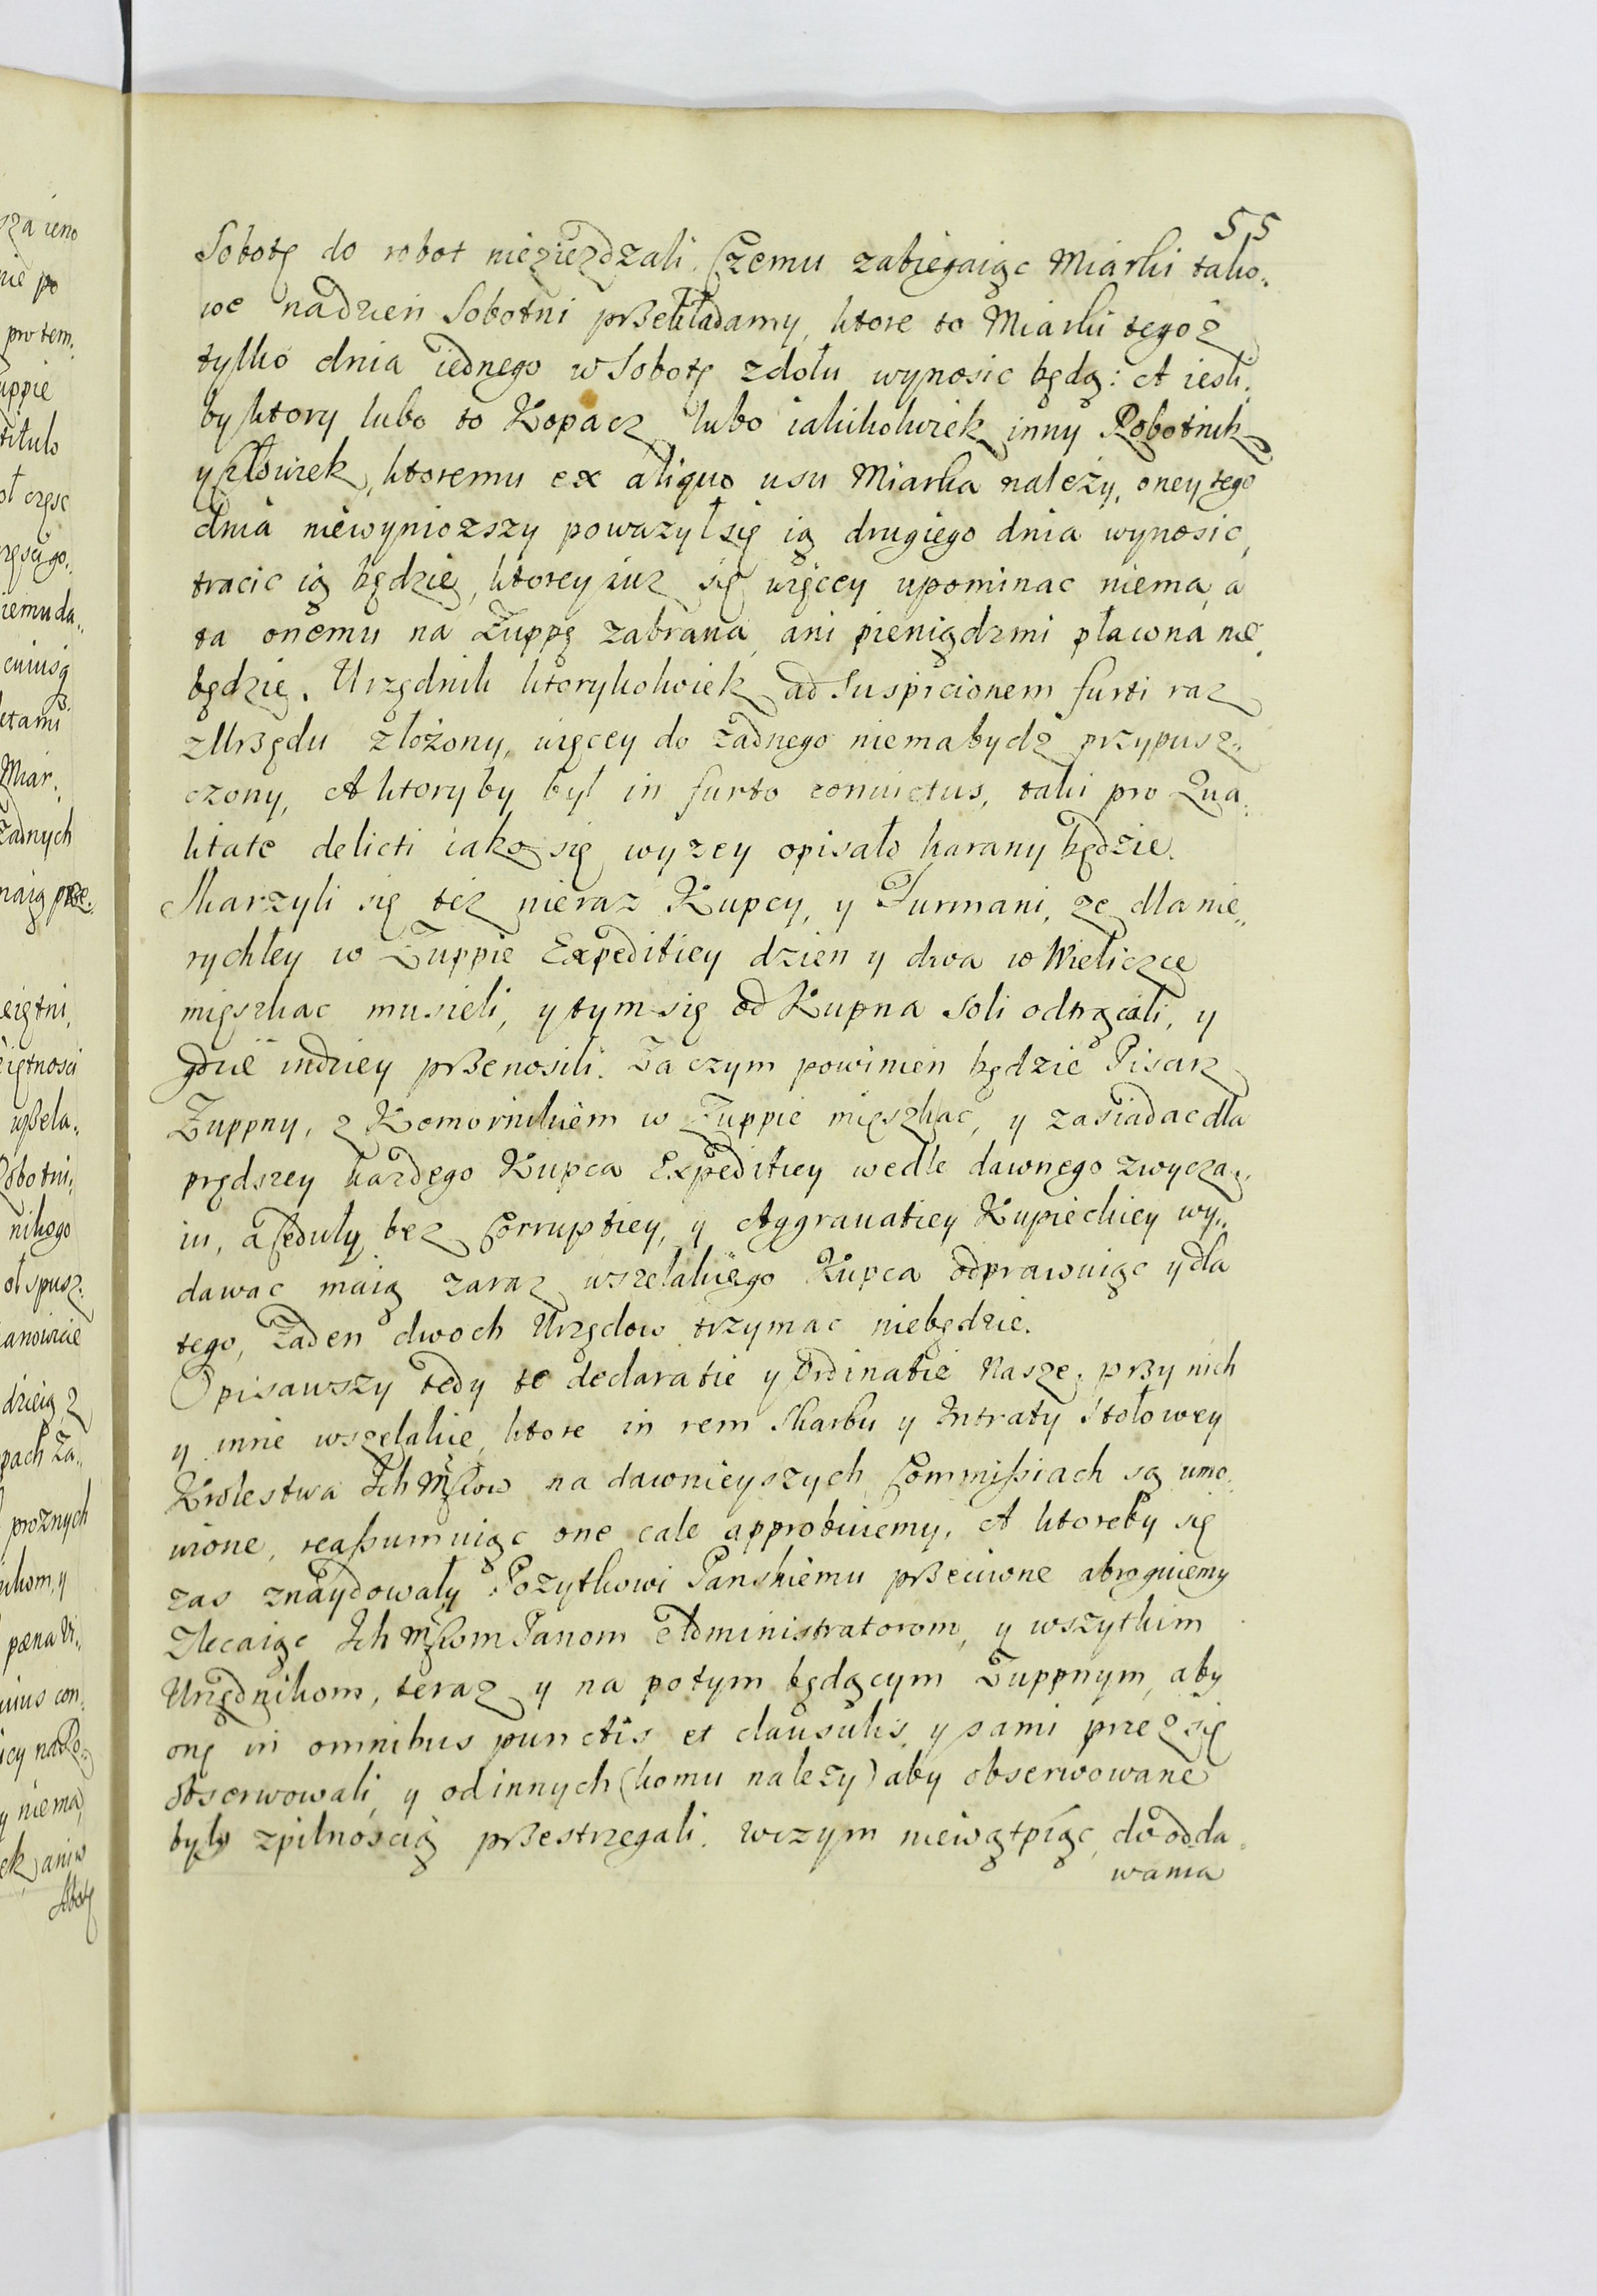 55
Sobotę do robot niezieżdzali. Czemu zabiegaiąc Miarki tako,
we nadzien Sobotni przekładamy, ktore to Miarki tegoż
tylko dnia iednego w Sobotę zdołu wynosic będą: A iesli,
by ktory lubo to Kopacz lubo iakikolwiek inny Robotnik
y człowiek, ktoremu ex aliquo usu Miarka należy, oney tego
dnia niewyniozszy poważył się ią drugiego dnia wynosic,
tracic ią będzie, ktorey iuz się więcey upominac niema, a
ta onemu na Żuppę zabrana, ani pieniądzmi płacona nie,
będzie. Urzędnik ktorykolwiek ad Suspicionem furti raz
z Urzędu złożony, więcey do żadnego niema bydz przypusz,,
czony, A ktoryby był in furto conuictus, taki pro Qua,
litate delicti iako się wyzey opisało karany będzie.
Skarzyli się tez nieraz Kupcy, y Furmani, ze dla nie,,
rychłey w Żuppie Expeditiey dzien y dwa w Wieliczce
mięszkac musieli, y tym się od Kupna Soli odtrącali, y
gdzie indziey przenosili. Za czym powinien będzie Pisarz
Żuppny, z Komornikiem w Żuppie mięszkac, y zasiadac dla
prędszey kazdego Kupca Expeditiey wedle dawnego zwycza,,
iu, a ceduły bez Corruptiey, y Aggrauatiey Kupieckiey wy,,
dawac maią zaraz wszelakiego Kupca odprawuiąc y dla
tego, Żaden dwoch Urzędow trzymac niebędzie.
Opisawszy tedy te declaratie y Ordinatie Nasze, przy nich
y inne wszelakie, ktore in rem Skarbu y Intraty Stołowey
Krolestwa Ich Mściow na dawnieyszych Commissiach są umo,
wione, reassumuiąc one cale approbuiemy, A ktoreby się
zas znaydowały Pozytkowi Panskiemu przeciwne abroguiemy
Zlecaiąc Ich Mściom Panom Administratorom, y wszytkim
Urzędnikom, teraz y na potym będącym Żuppnym, aby
one in omnibus punctis et clausulis, y sami przez się
obserwowali, y od innych (komu nalezy) aby obserwowane
były zpilnością przestrzegali. Wczym niewątpiąc, do odda,
wania